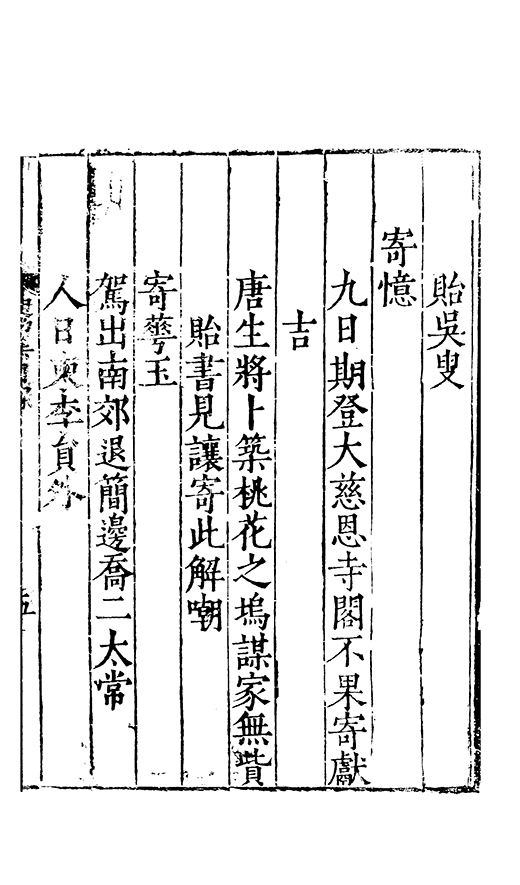 貽吳叟
寄憶
九日期登大慈恩寺閣不果寄獻
吉
唐生將卜築桃花之塢謀家無貲
貽書見讓寄此解嘲
寄蕚玉
駕出南郊退簡邊喬二太常
人日東李員外
五